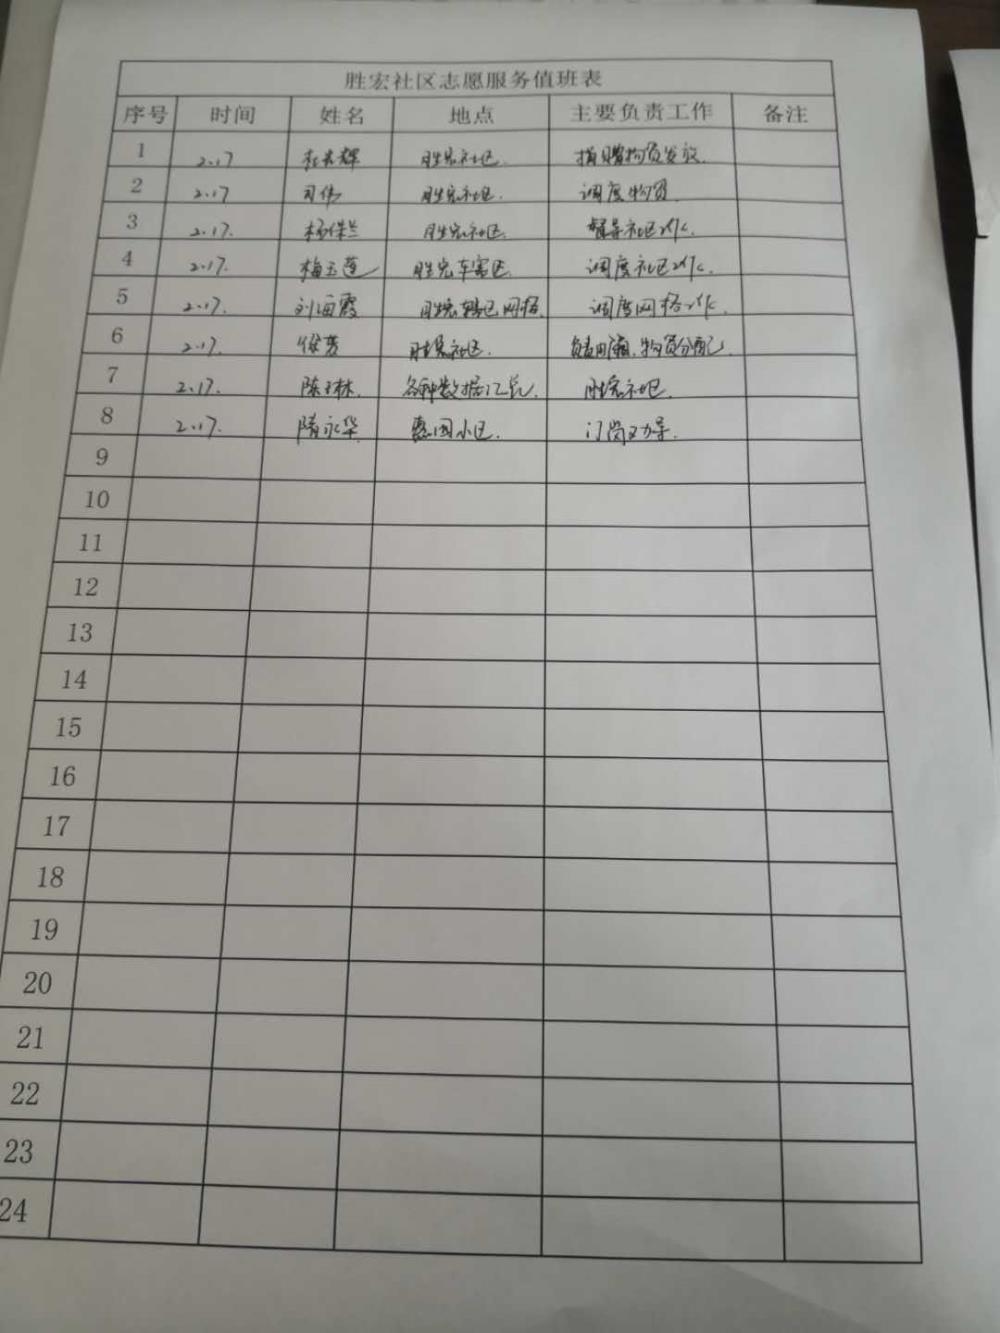 胜宏社区志愿服务值班表
序号 时间 姓名 地点 主要负责工作 备注
1 2.17 辉 胜宏社区. 捐赠物资发放.
2 2.17 司伟 胜宏社区. 调度物资
3 2.17. 杨保兰 胜宏社区. 社区
4 2.17. 梅玉莲 胜宏 区. 调度社区
5 2.17. 刘海霞 胜宏 区网格. 调度网格
6 2.17. 胜宏社区. 物资分配.
7 2.17. 陈玉林. 各种数据汇总. 胜宏社区.
8 2.17. 隋永华 惠园小区. 门岗劝导.
9
10
11
12
13
14
15
16
17
18
19
20
21
22
23
24